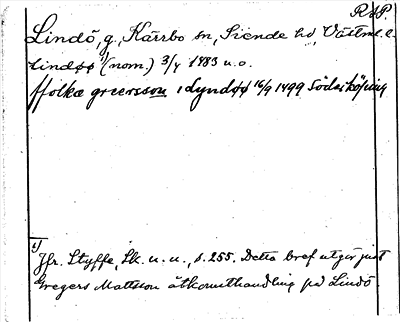 RAP.
Lindö, g., Kärrbo sn, Siende hd, Västml. l.
Lindøø ¹⁾ (nom.) 3/4 1483 u.o.
ffolka greersson i Lyndøø 16/9 1499 Söderköping
1) Jfr. Styffe, Sk. u. u., s. 255. Detta bref utgör just
Gregers Mattsson åtkomsthandling på Lindö.